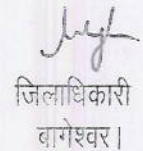 जिलाधिकारी
बागेश्वर।